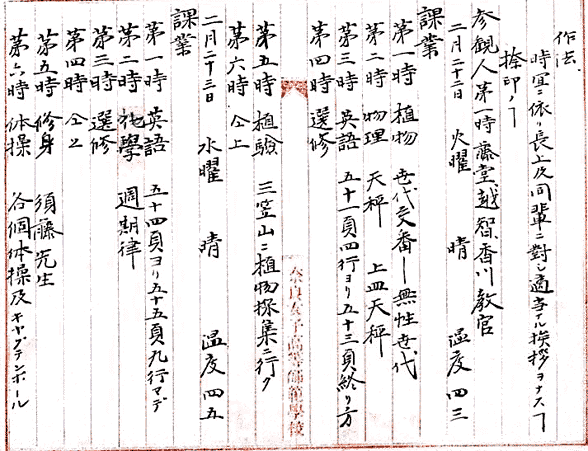 作法
時宜ニ依リ長上及同輩ニ對シ適当ナル挨拶ヲナスヿ
捺印ノヿ
参観人第一時藤堂越智香川教官
二月二十二日 火曜 晴 温度 四三
課業
第一時 植物 世代交番―無性世代
第二時 物理 天秤 上皿天秤
第三時 英語 五十一頁四行ヨリ五十三頁終リ方
第四時 選修
第五時 植驗 三笠山ニ植物採集ニ行ク
第六時 仝上
奈良女子高等師範學校
二月二十三日 水曜 晴 温度 四五
課業
第一時 英語 五十四頁ヨリ五十五頁九行マデ
第二時 化學 週期律
第三時 選修
第四時 仝上
第五時 修身 須藤先生
第六時 体操 各個体操及キヤプテンボール